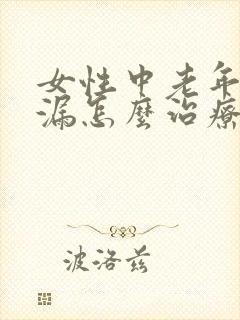 女性中老年
漏怎麼治療
波洛茲